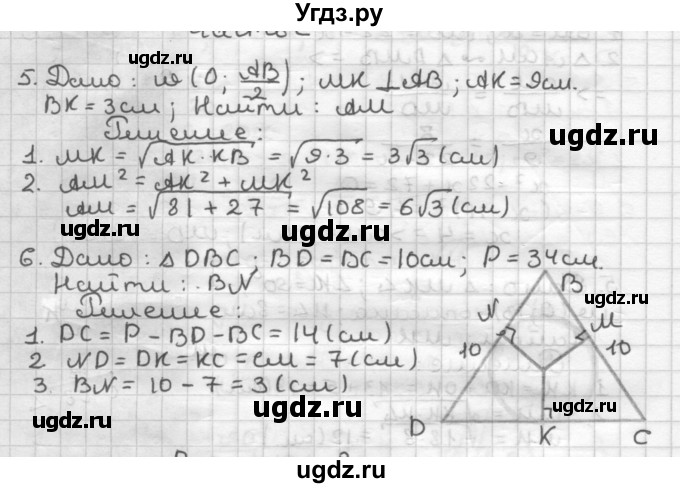 Угдз.ру
5. Дано: ω (O; AB/2); MK ⊥ AB; AK = 9 см.
BK = 3 см; Найти: AM
Решение:
1. MK = √AK·KB = √9·3 = 3√3 (см)
2. AM² = AK² + MK²
AM = √81 + 27 = √108 = 6√3 (см)
6. Дано: △ DBC; BD = BC = 10 см; P = 34 см.
Найти: BN
Решение:
1. DC = P - BD - BC = 14 (см)
2 ND = DK = KC = CM = 7 (см)
3 BN = 10 - 7 = 3 (см)
B
N
M
10
10
D
K
C
ugdz.ru
ugdz.ru
ugdz.ru
ugdz.ru
ugdz.ru
ugdz.ru
ugdz.ru
ugdz.ru
ugdz.ru
ugdz.ru
ugdz.ru
ugdz.ru